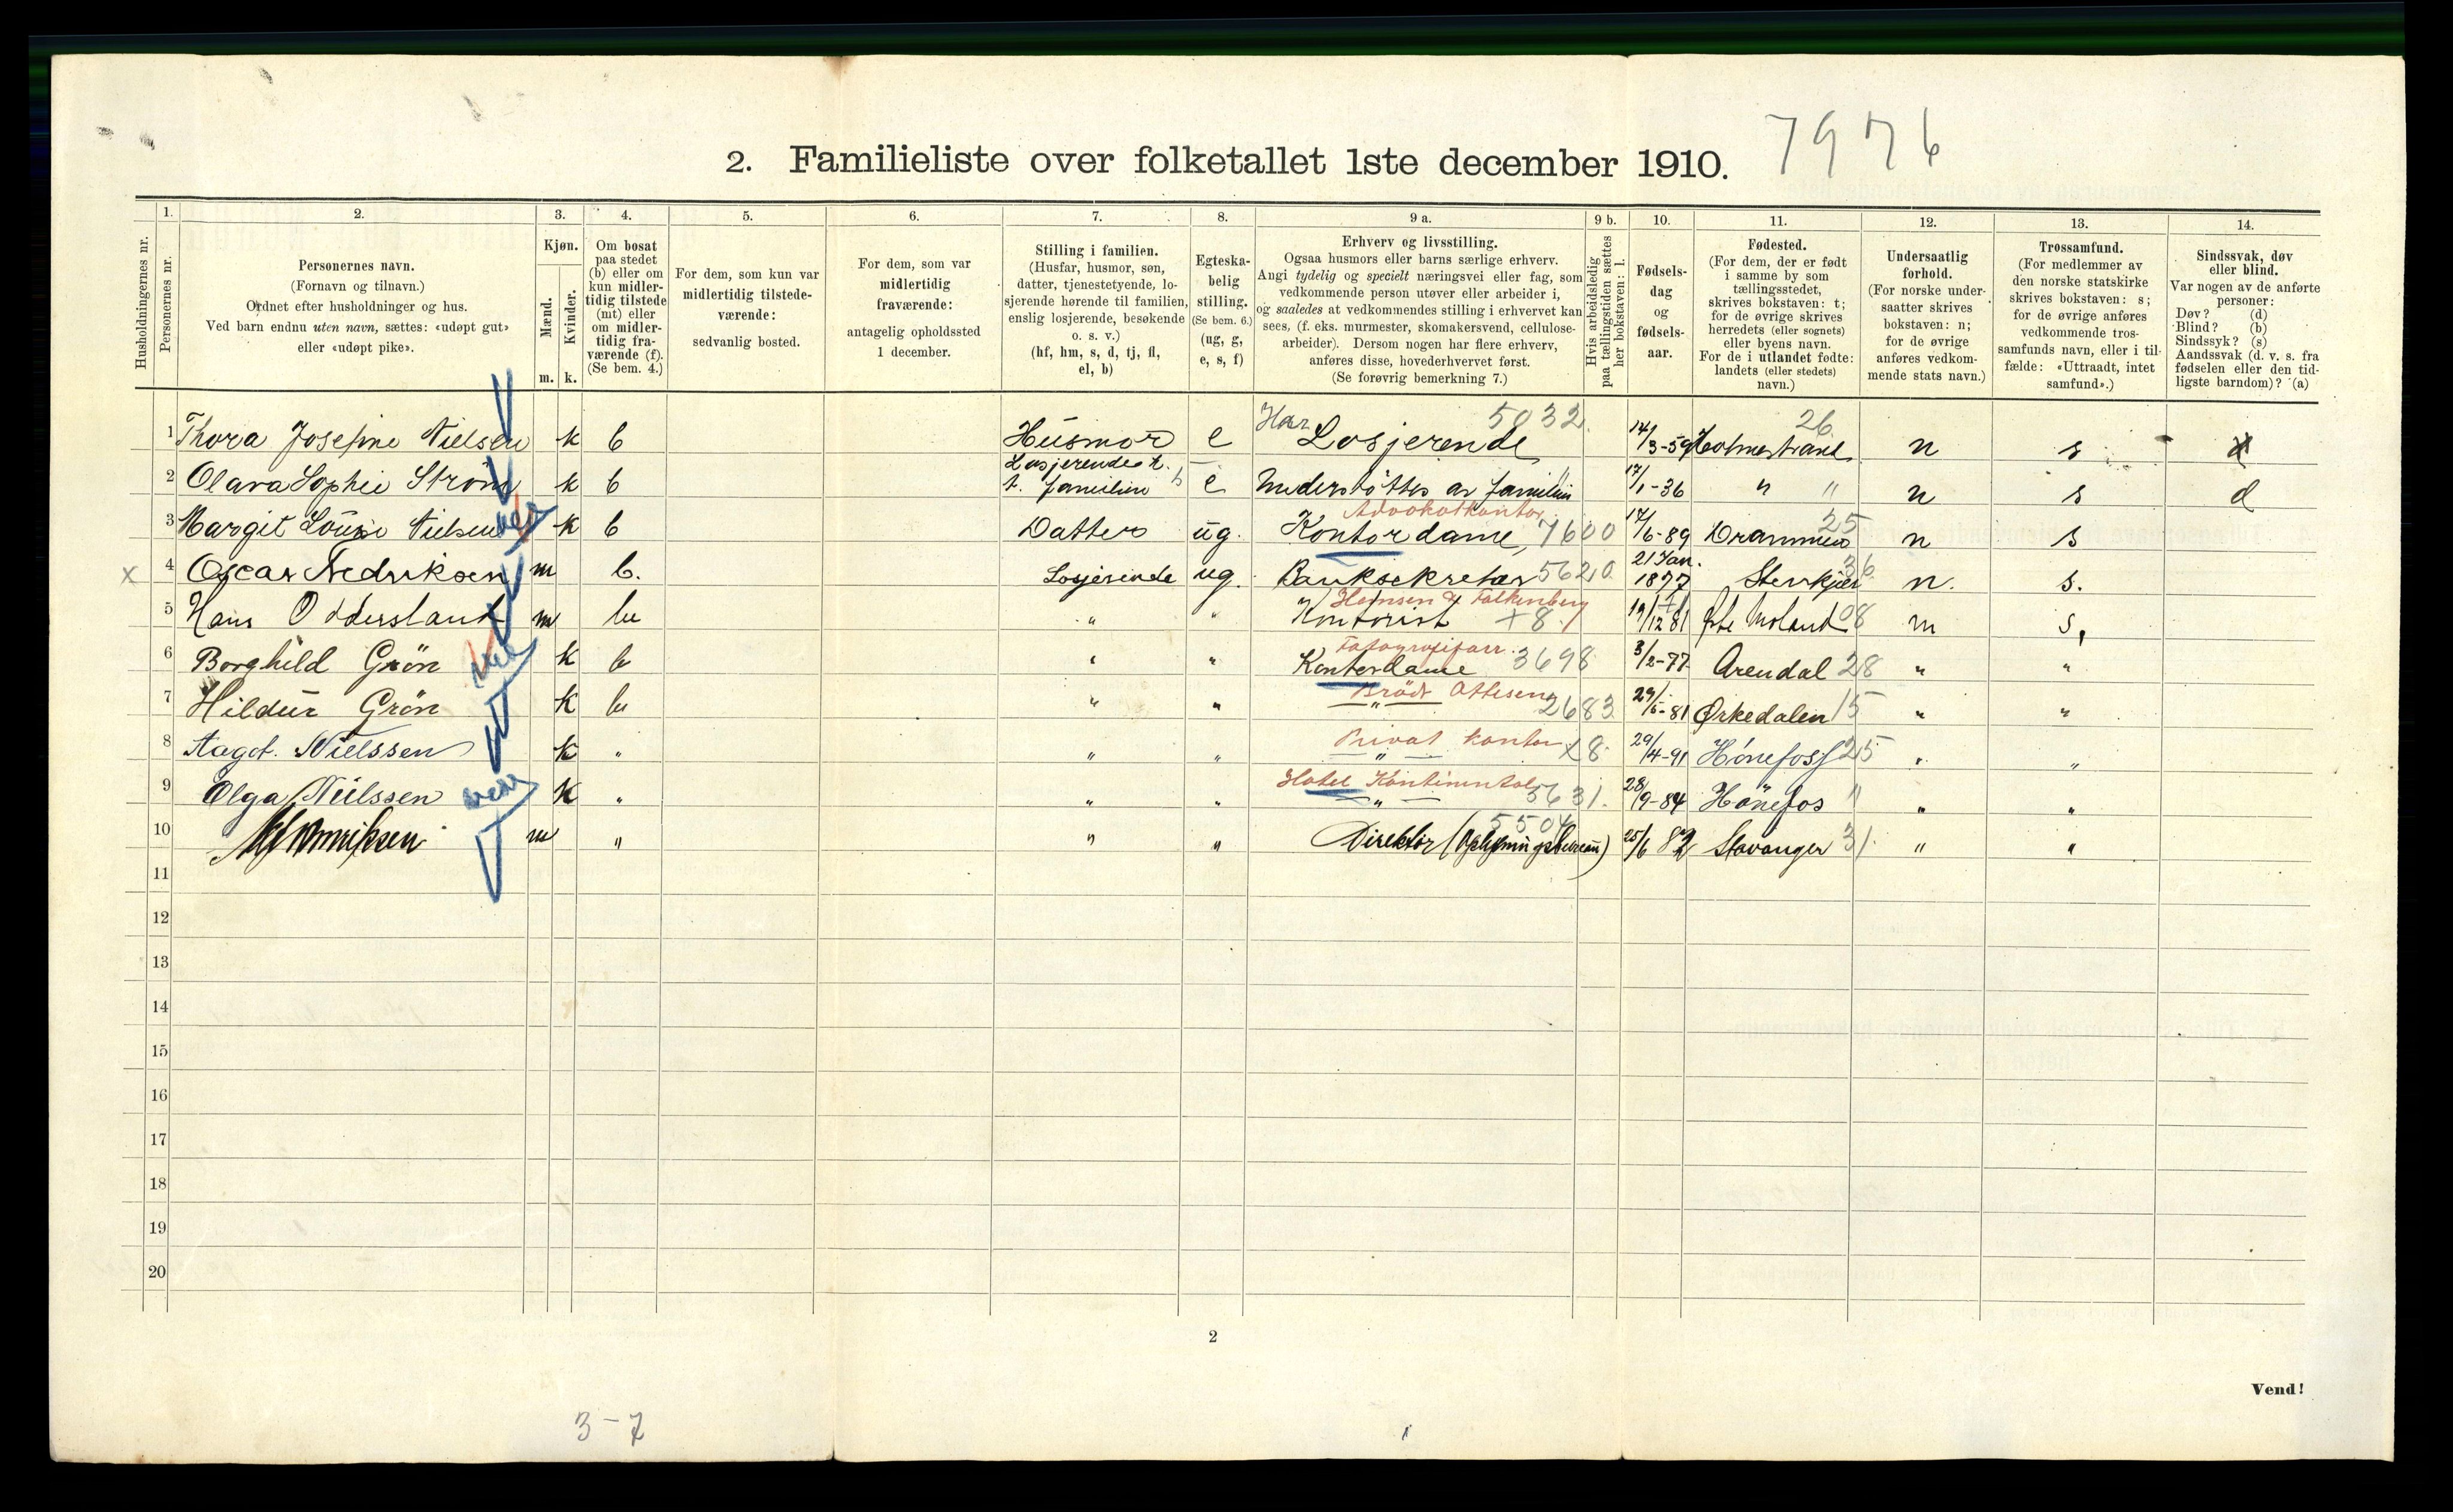 7976
2. Familieliste over folketallet 1ste december 1910.
Husholdningernes nr.
1. Personernes nr.
2. Personernes navn. (Fornavn og tilnavn.) Ordnet efter husholdninger og hus. Ved barn endnu uten navn, sættes: «udøpt gut» eller «udøpt pike».
3. Kjøn. Mænd. m. Kvinder. k.
4. Om bosat paa stedet (b) eller om kun midlertidig tilstede (mt) eller om midlertidig fraværende (f). (Se bem. 4.)
5. For dem, som kun var midlertidig tilstedeværende: sedvanlig bosted.
6. For dem, som var midlertidig fraværende: antagelig opholdssted 1 december.
7. Stilling i familien. (Husfar, husmor, søn, datter, tjenestetyende, losjerende hørende til familien, enslig losjerende, besøkende o. s. v.) (hf, hm, s, d, tj, fl, el, b)
8. Egteskabelig stilling. (Se bem. 6.) (ug, g, e, s, f)
9 a. Erhverv og livsstilling. Ogsaa husmors eller barns særlige erhverv. Angi tydelig og specielt næringsvei eller fag, som vedkommende person utøver eller arbeider i, og saaledes at vedkommendes stilling i erhvervet kan sees, (f. eks. murmester, skomakersvend, cellulosearbeider). Dersom nogen har flere erhverv, anføres disse, hovederhvervet først. (Se forøvrig bemerkning 7.)
9 b. Hvis arbeidsledig paa tællingstiden sættes her bokstaven: l.
10. Fødselsdag og fødselsaar.
11. Fødested. (For dem, der er født i samme by som tællingsstedet, skrives bokstaven: t; for de øvrige skrives herredets (eller sognets) eller byens navn. For de i utlandet fødte: landets (eller stedets) navn.)
12. Undersaatlig forhold. (For norske undersaatter skrives bokstaven: n; for de øvrige anføres vedkommende stats navn.)
13. Trossamfund. (For medlemmer av den norske statskirke skrives bokstaven: s; for de øvrige anføres vedkommende trossamfunds navn, eller i tilfælde: «Uttraadt, intet samfund».)
14. Sindssvak, døv eller blind. Var nogen av de anførte personer: Døv? (d) Blind? (b) Sindssyk? (s) Aandssvak (d. v. s. fra fødselen eller den tidligste barndom)? (a)
1 Thora Josefine Nielsen k b Husmor e Har Losjerende 5032 14/3-59 Holmestrand 26 n s
2 Olava Sophie Strøm k b Losjerende h. t. familien e Understøttes av familien 17/1-36 " " n s d
3 Margit Louise Nielsen k b Datter ug. Advokatkontor Kontordame, 7600 17/6-89 Drammen 25 n s
x 4 Oscar Fredriksen m b. Losjerende ug. Banksekretær 5620 21 Jan. 1877 Stenkjær 36 n. s.
5 Hans Oddersland m b " " Kontorist +8 19/12 81 Øste Moland 08 n s,
6 Borghild Grön k b " " Fotografifarr. Kontordame 3698 3/2-77 Arendal 28 " "
7 Hildur Grön k b " " Brödr Ottesen " 2683 29/5-81 Ørkedalen 15 " "
8 Aagot. Nielssen k " " " Privat kontor " x8 29/4-91 Hönefoss 25 " "
9 Olga Nielssen k " " " Hotel Kontinental " 5631. 28/9-84 Hönefos " " "
10 m " " " Direktør (Oplysningsbureau) 5504 25/6 82 Stavanger 31 " "
11
12
13
14
15
16
17
18
19
20
2
Vend!
3-7